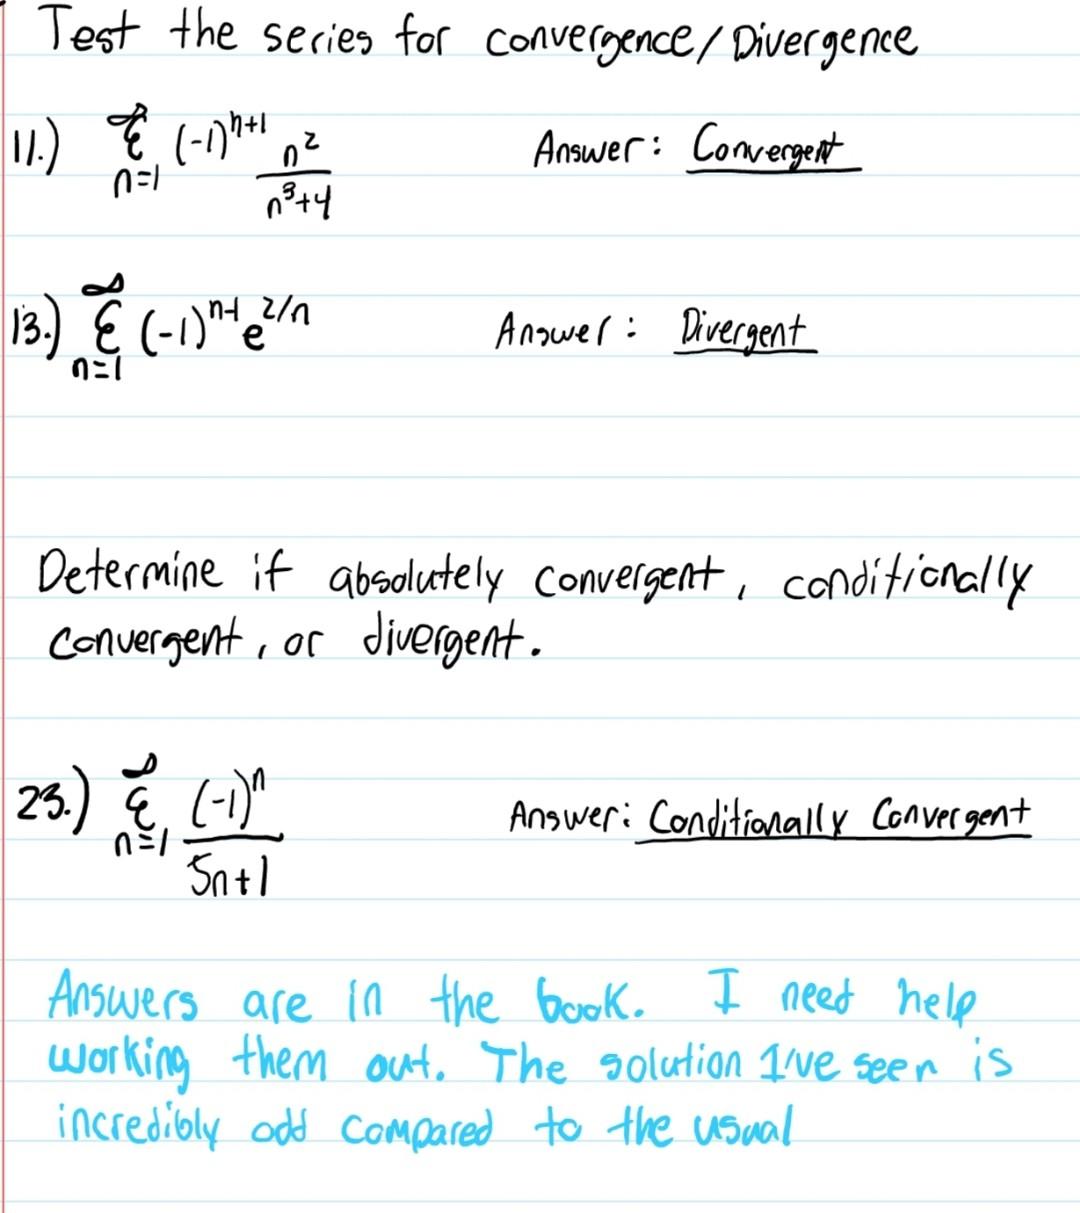 Test the series for convergence/Divergence
11.) ∞ Σ n=1 (-1)^{n+1} n²/(n³+4) Answer: Convergent
13.) ∞ Σ n=1 (-1)^{n-1} e^{2/n} Answer: Divergent
Determine if absolutely convergent, conditionally
convergent, or divergent.
23.) ∞ Σ n=1 (-1)^n/(5n+1) Answer: Conditionally Convergent
Answers are in the book. I need help
working them out. The solution I've seen is
incredibly odd compared to the usual